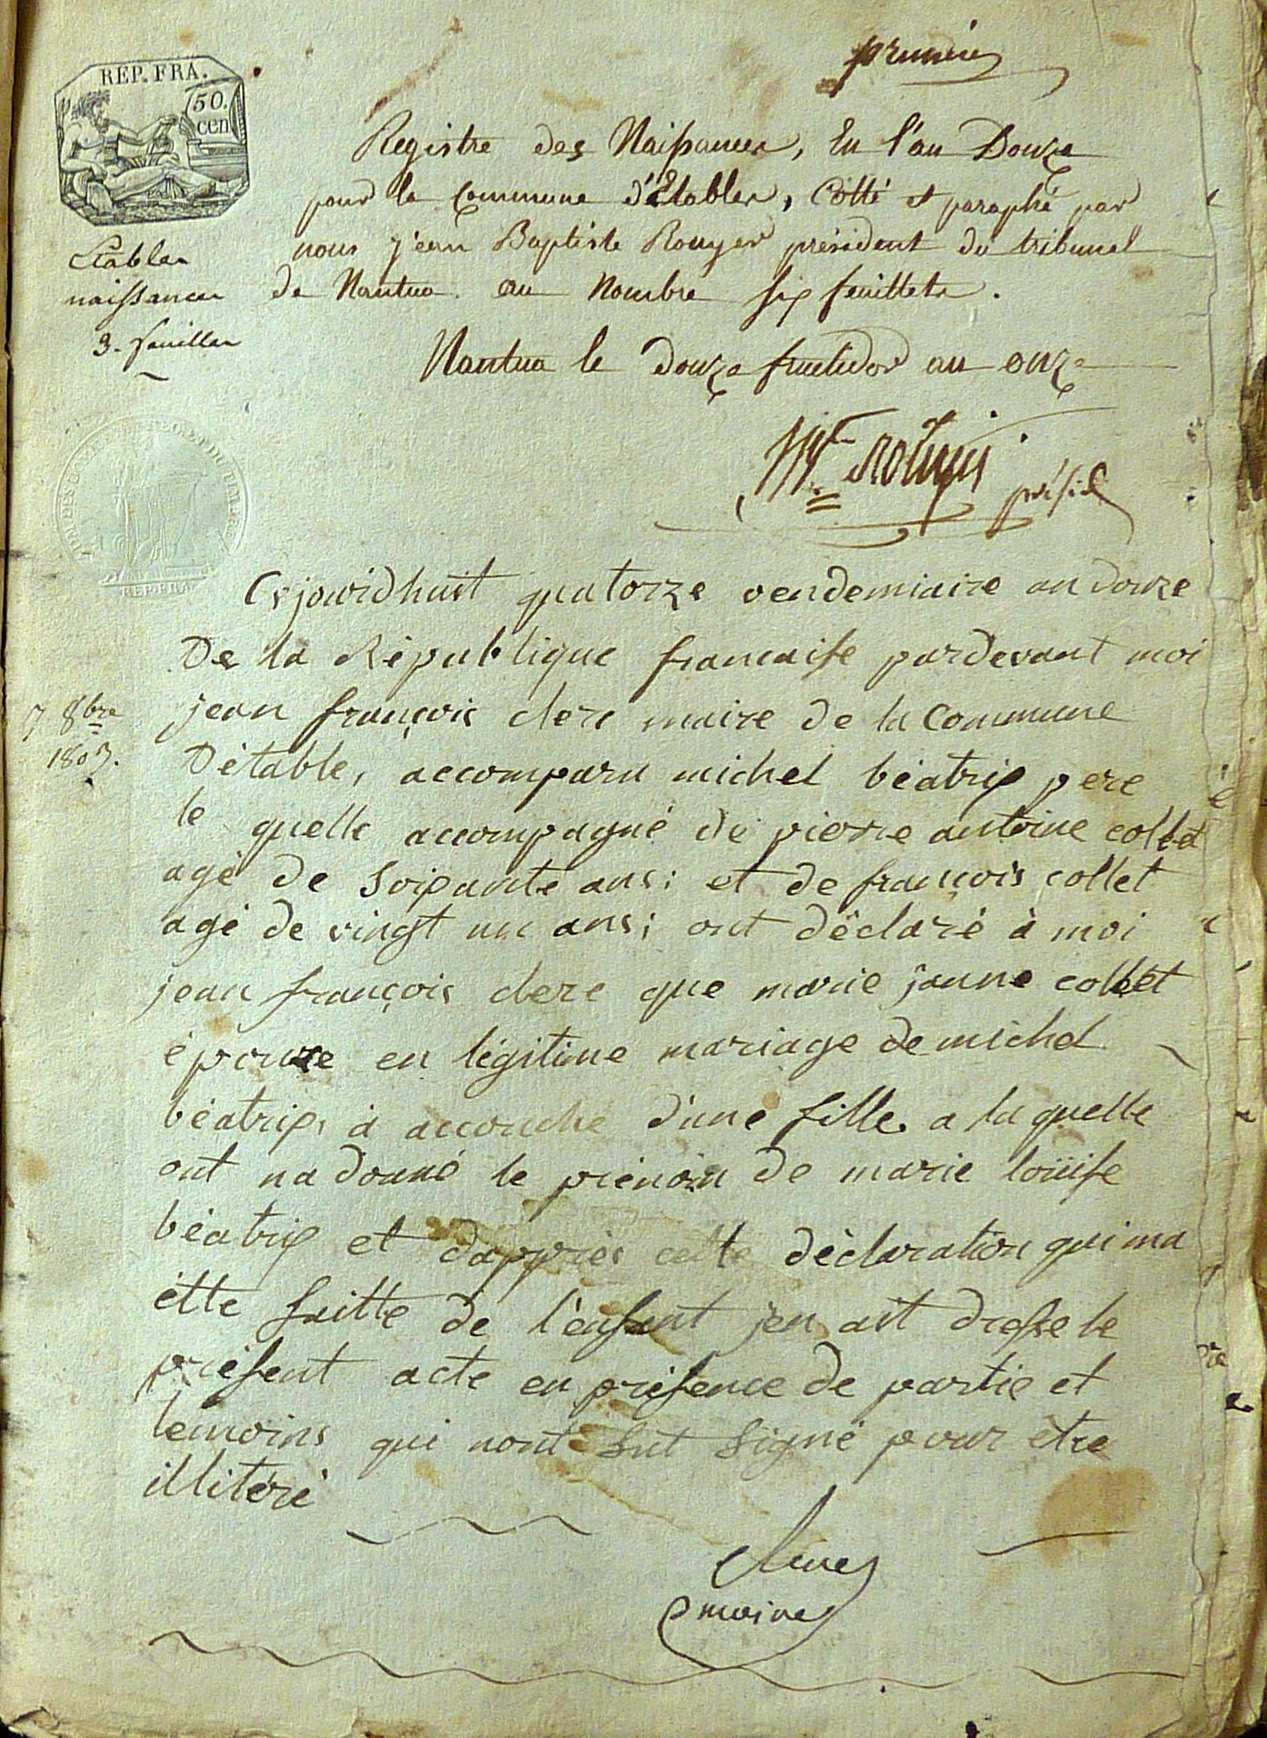 premier
REP. FRA.
50.
cen
Registre des Naissances, En l'an Douze
pour la Commune d'Etables, Cotté et paraphé par
nous jean Baptiste Rouyer président du tribunal
de Nantua au Nombre six feuillets.
Nantua le douze fructidor an onze
Etables
naissances
3. feuilles
présid
REP. FRA
Cejourdhuit quatorze vendemiaire an douze
De la République francaise pardevant moi
7 8bre
1803.
jean françois clerc maire de la Commune
Détable, accomparu michel béatrix pere
le quelle accompagné de pierre antoine collet
agé de soixante ans; et de françois collet
agé de vingt un ans; ont déclaré à moi
jean françois clerc que marie janne collet
épouze en légitime mariage de michel
béatrix, à accouché d'une fille a la quelle
ont na donné le prénom de marie loüise
béatrix et dapprès cette déclaration qui ma
étte faitte de l'enfant jen ait dresse le
présent acte en présence de partie et
temoins qui nont sut signé pour etre
illitéré
Clerc
maire